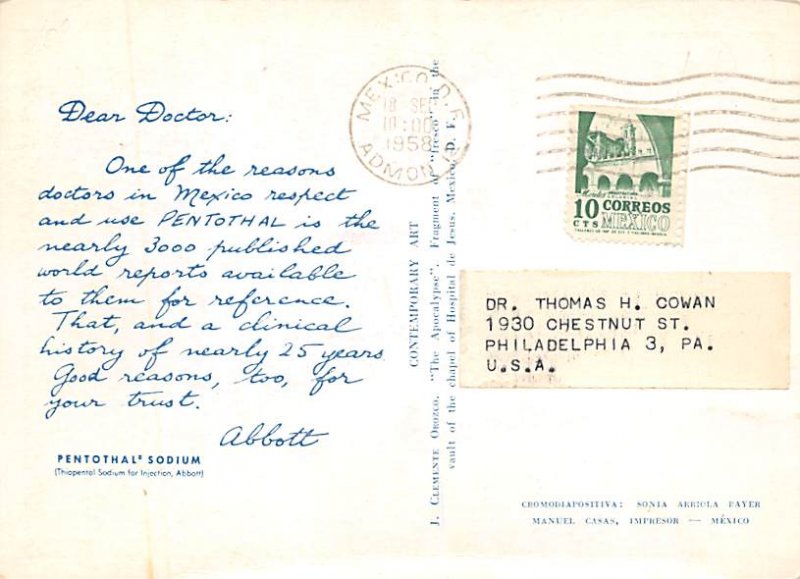 Dear Doctor:
One of the reasons
doctors in Mexico respect
and use PENTOTHAL is the
nearly 3000 published
world reports available
to them for reference.
That, and a clinical
history of nearly 25 years.
Good reasons, too, for
your trust.
Abbott
PENTOTHAL® SODIUM
(Thiopental Sodium for Injection, Abbott)
CONTEMPORARY ART
J. CLEMENTE OROZCO. "The Apocalypse". Fragment of "fresco" in the
vault of the chapel of Hospital de Jesus. Mexico, D. F.
MEXICO, D. F.
18 SEP
10:00
1958
ADMON
Morelos
10 CORREOS
CTS MEXICO
DR. THOMAS H. COWAN
1930 CHESTNUT ST.
PHILADELPHIA 3, PA.
U.S.A.
CROMODIAPOSITIVA: SONIA ARRIOLA PAYER
MANUEL CASAS, IMPRESOR — MÉXICO